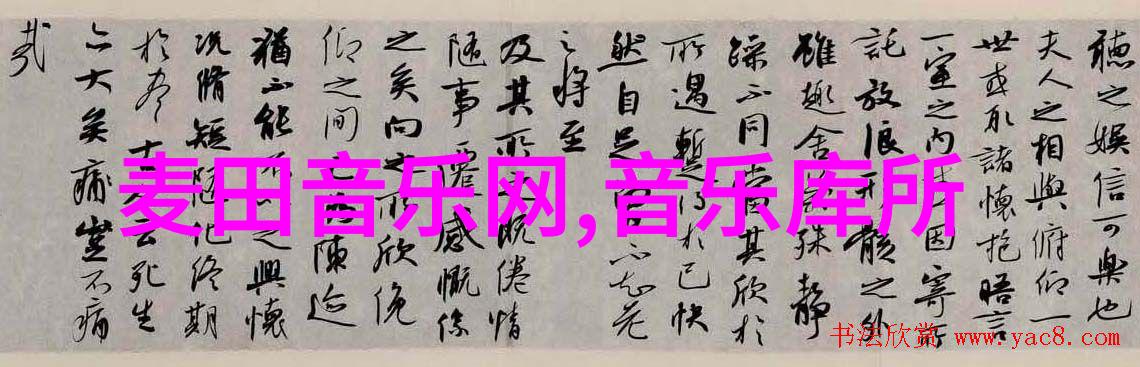 聽之娛信可樂也
夫人之相與俯仰一
世或取諸懷抱晤言
一室之内因寄所
託放浪形骸之外
雖趣舍殊靜
躁不同當其欣於
所遇蹔得於己快
然自足不知老
之將至
及其所之既倦情
随事遷感慨係
之矣向之所欣俛
仰之間陳迹
猶不能不以之興懷
況脩短随化終期
於盡古云死生
亦大矣痛豈不痛
哉
麦田音乐网,音乐库所
书法欣赏 www.yac8.com